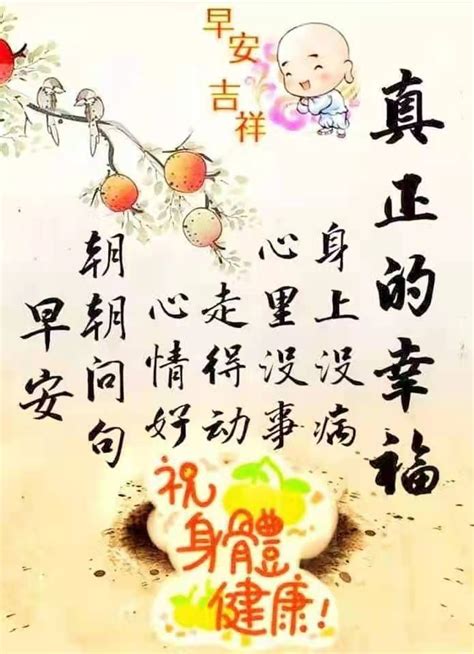 早安吉祥
真正的幸福
身上没病
心里没事
走得动
心情好
朝朝问句
早安
祝
身體
健康!